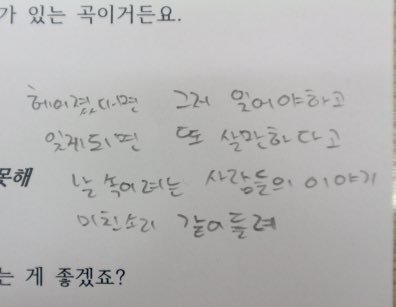 가 있는 곡이거든요.
헤어졌다면 그저 잊어야하고
잊게되면 또 살만하다고
못해 날 속이려는 사람들의 이야기
미친소리 같이 들려
는 게 좋겠죠?